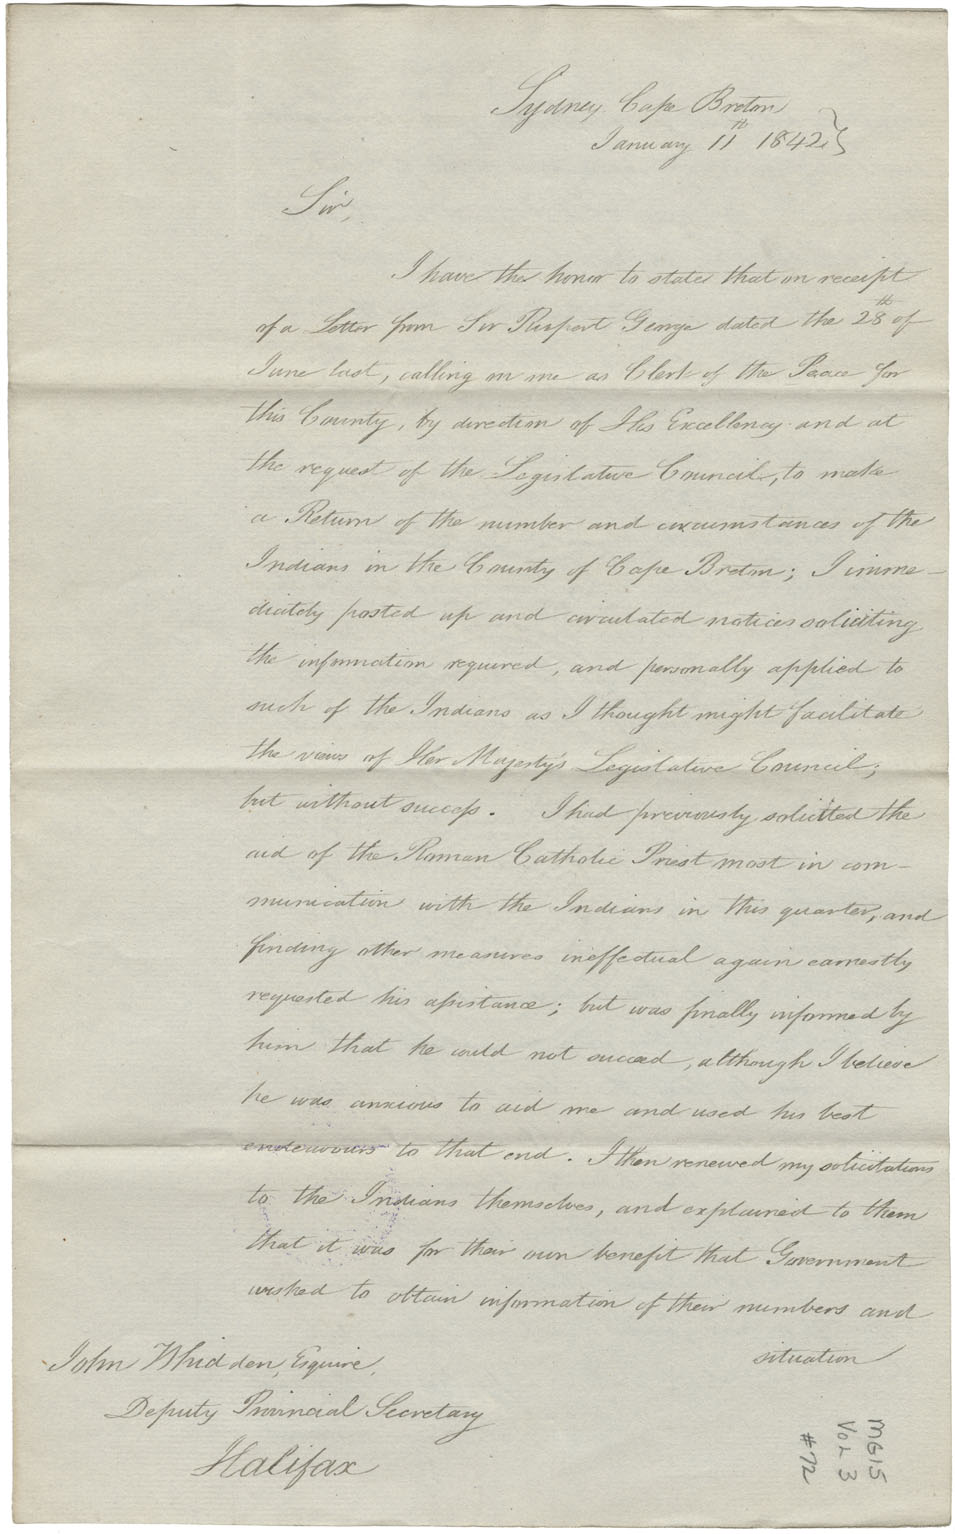 Sydney Cape Breton
January 11th 1842
Sir,
I have the honor to state that on receipt
of a Letter from Sir Rupert George dated the 28th of
June last, calling on me as Clerk of the Peace for
this County, by direction of His Excellency and at
the request of the Legislative Council, to make
a Return of the number and circumstances of the
Indians in the County of Cape Breton; I imme-
diately posted up and circulated notices soliciting
the information required, and personally applied to
such of the Indians as I thought might facilitate
the views of Her Majesty's Legislative Council;
but without success. I had previously solicited the
aid of the Roman Catholic Priest most in com-
munication with the Indians in this quarter, and
finding other measures ineffectual again earnestly
requested his assistance; but was finally informed by
him that he could not succeed, although I believe
he was anxious to aid me and used his best
endeavours to that end. I then renewed my solicitations
to the Indians themselves, and explained to them
that it was for their own benefit that Government
wished to obtain information of their numbers and
situation
John Whidden, Esquire,
Deputy Provincial Secretary
Halifax
MG15
Vol 3
#72